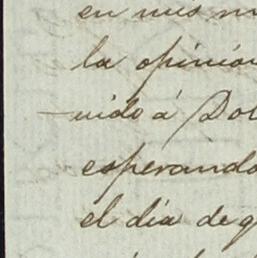 en mis m
la opinión
nido á Dol
esperando
el día de q